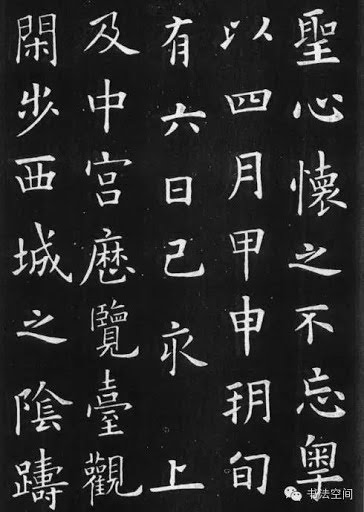 聖心懷之不忘粤
以四月甲申朔旬
有六日己亥上
及中宫歴覽臺觀
閑步西城之陰躊
书法空间